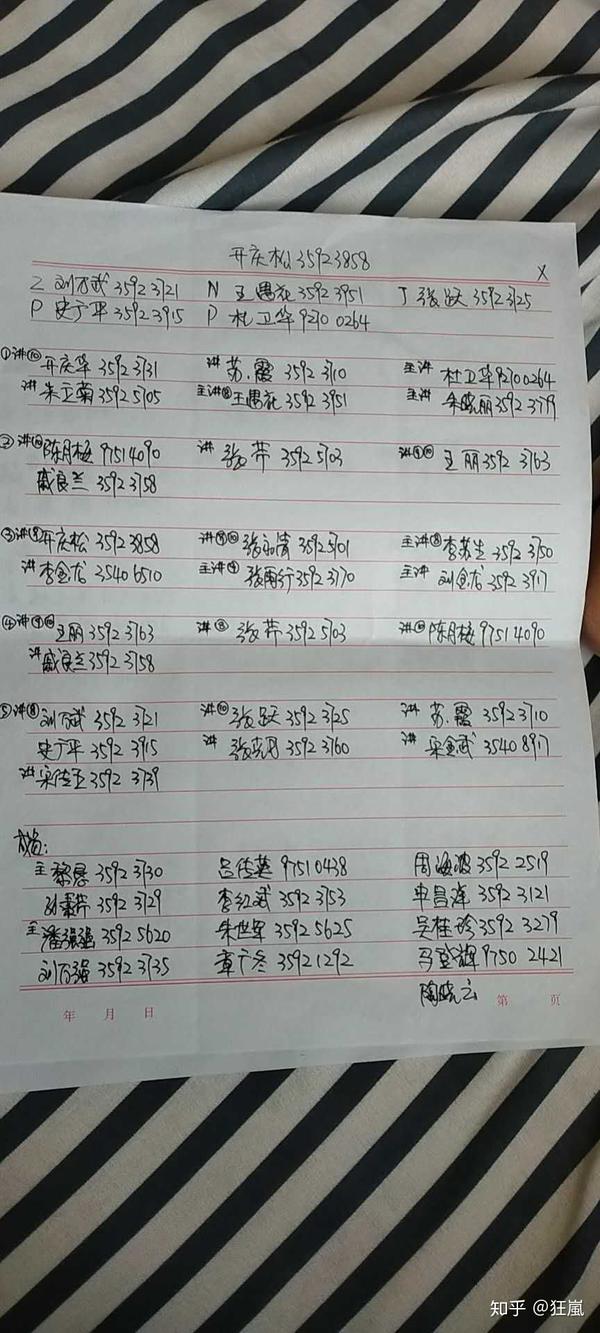 开庆松 3592 3858
X
Z 刘万武 3592 3721 N 王愚花 3592 3951 J 张跃 3592 3725
P 史广平 3592 3915 P 杜卫华 9270 0264
①讲⑩ 开庆华 3592 3731 讲 苏霞 3592 3710 主讲 杜卫华 9270 0264
讲 朱立菊 3592 5705 主讲⑧ 王愚花 3592 3951 主讲 朱晓丽 3592 3779
②讲⑩ 陈月梅 9751 4090 讲 张苹 3592 5703 讲⑨⑩ 王丽 3592 3763
戚良兰 3592 3758
③讲⑨ 开庆松 3592 3858 讲⑨⑩ 张永清 3592 5701 主讲⑧ 李苏生 3592 3750
讲 李金龙 3540 6510 主讲⑨ 张雨行 3592 3770 主讲 刘金龙 3592 3917
④讲⑨⑩ 王丽 3592 3763 讲⑧ 张苹 3592 5703 讲⑩ 陈月梅 9751 4090
讲 戚良兰 3592 3758
⑤讲⑧ 刘万武 3592 3721 讲⑩ 张跃 3592 3725 讲 苏霞 3592 3710
史广平 3592 3915 讲 张克月 3592 3760 讲 宋金武 3540 8917
讲 宋传玉 3592 3739
主 黎愚 3592 3730 吕传英 9751 0438 周海波 3592 2519
孙素芹 3592 3729 李红斌 3592 3753 申昌泽 3592 3121
主 潘强强 3592 5620 朱世军 3592 5625 吴桂珍 3592 3279
刘万强 3592 3735 章广冬 3592 1292 马登辉 9750 2421
陶晓云
年 月 日 第 页
知乎 @狂嵐